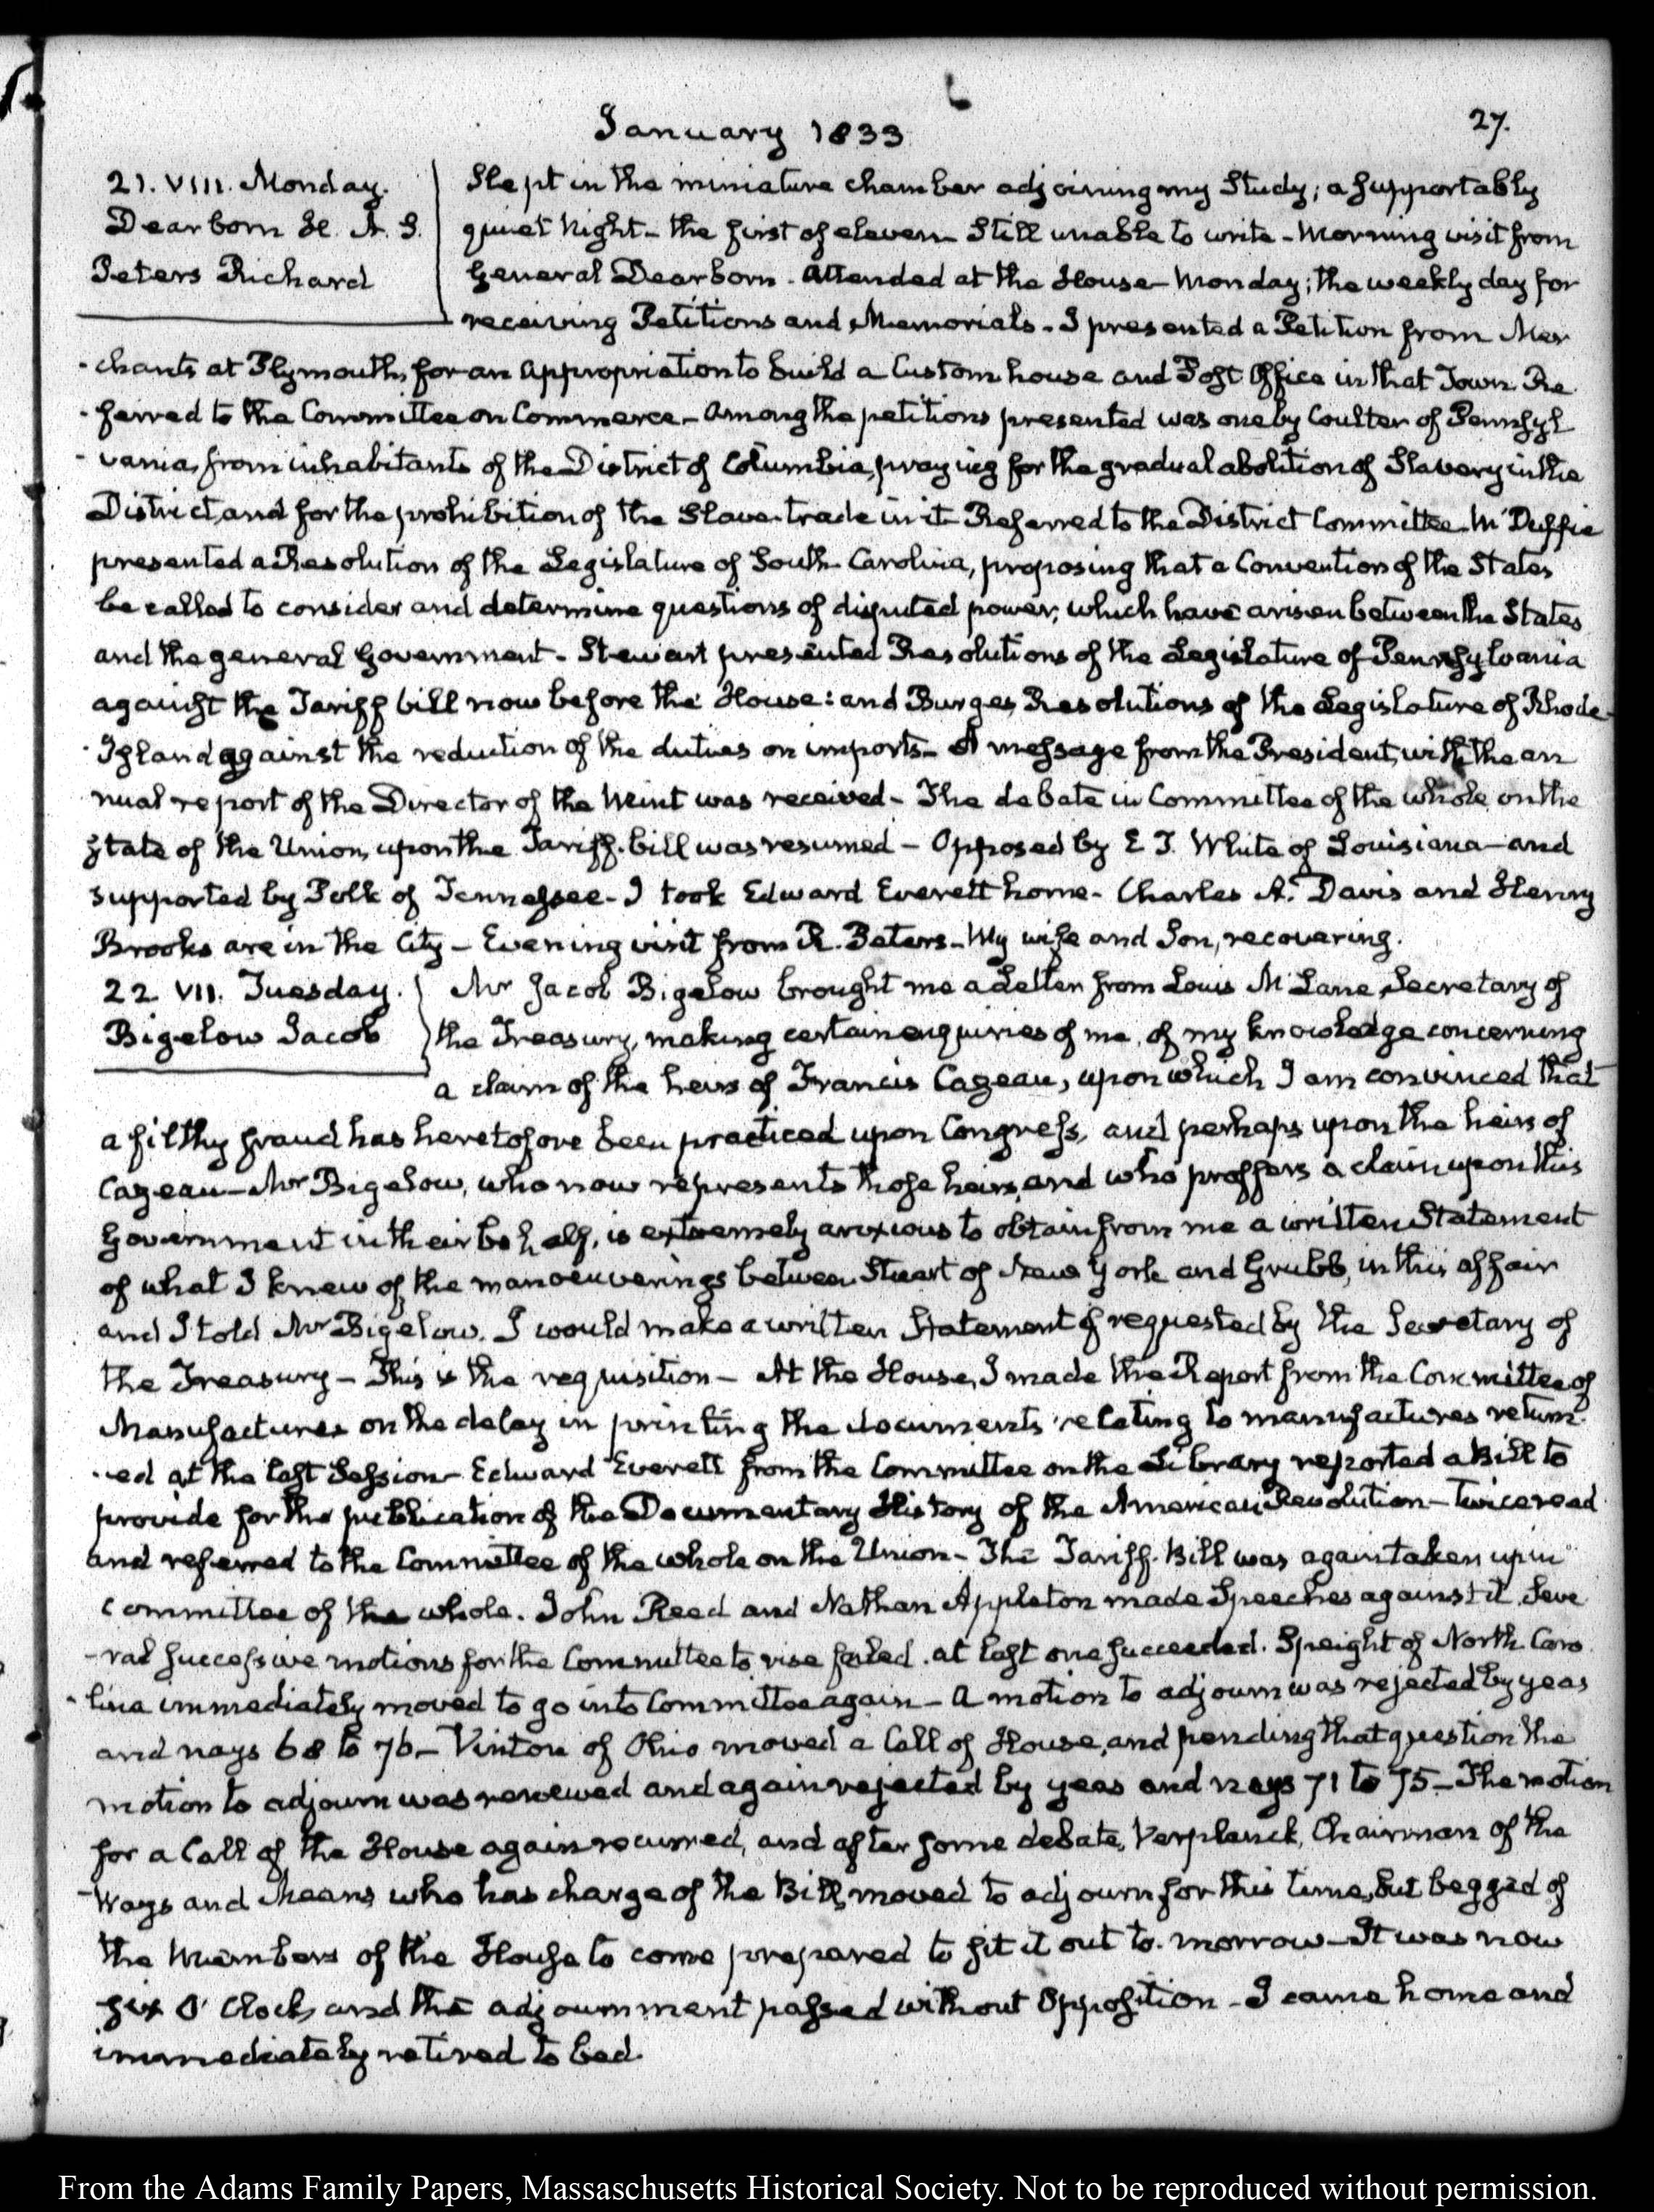 January 1833
27.
21. VIII. Monday.
Dearborn H. A. S.
Peters Richard
Slept in the miniature chamber adjoining my Study; a supportably
quiet Night- the first of eleven- Still unable to write- Morning visit from
General Dearborn. Attended at the House- Monday; the weekly day for
receiving Petitions and Memorials- I presented a Petition from Mer
-chants at Plymouth, for an appropriation to build a Custom house and Post Office in that Town. Re
-ferred to the Committee on Commerce- Among the petitions presented was one by Coulter of Pennsyl
-vania, from inhabitants of the District of Columbia, praying for the gradual abolition of Slavery in the
District, and for the prohibition of the Slave-trade in it- Referred to the District Committee- McDuffie
presented a Resolution of the Legislature of South-Carolina, proposing that a Convention of the States
be called to consider and determine questions of disputed power, which have arisen between the States
and the general Government- Stewart presented Resolutions of the Legislature of Pennsylvania
against the Tariff bill now before the House: and Burges Resolutions of the Legislature of Rhode-
-Island against the reduction of the duties on imports- A message from the President, with the an
nual report of the Director of the Mint was received- The debate in Committee of the whole on the
state of the Union, upon the Tariff-bill was resumed- Opposed by E. D. White of Louisiana- and
supported by Polk of Tennessee- I took Edward Everett home- Charles A. Davis and Henry
Brooks are in the City- Evening visit from R. Peters- My wife and Son, recovering.
22 VII. Tuesday.
Bigelow Jacob
Mr Jacob Bigelow brought me a Letter from Louis McLane, Secretary of
the Treasury, making certain enquiries of me, of my knowledge concerning
a claim of the heirs of Francis Cazeau, upon which I am convinced that
a filthy fraud has heretofore been practiced upon Congress, and perhaps upon the heirs of
Cazeau- Mr Bigelow, who now represents those heirs, and who proffers a claim upon this
Government in their behalf, is extremely anxious to obtain from me a written Statement
of what I knew of the manoeuverings between Stuart of New York and Grubb, in this affair
and I told Mr Bigelow, I would make a written Statement if requested by the Secretary of
the Treasury- This is the requisition- At the House, I made the Report from the Committee of
Manufactures on the delay in printing the documents relating to manufactures return-
-ed at the last Session- Edward Everett from the Committee on the Library reported a Bill to
provide for the publication of the Documentary History of the American Revolution- Twice read
and referred to the Committee of the whole on the Union- The Tariff-Bill was again taken up in
committee of the whole. John Reed and Nathan Appleton made Speeches against it. Seve
-ral successive motions for the Committee to rise failed. at last one succeeded. Speight of North Caro
-lina immediately moved to go into Committee again- A motion to adjourn was rejected by yeas
and nays 68 to 76- Vinton of Ohio moved a Call of House, and pending that question the
motion to adjourn was renewed and again rejected by yeas and nays 71 to 75- The motion
for a Call of the House again recurred, and after some debate, Verplanck, Chairman of the
Ways and Means, who has charge of the Bill, moved to adjourn for this time, but begged of
the Members of the House to come prepared to sit it out to-morrow- It was now
six O'Clock, and the adjournment passed without Opposition- I came home and
immediately retired to bed.
From the Adams Family Papers, Massaschusetts Historical Society. Not to be reproduced without permission.